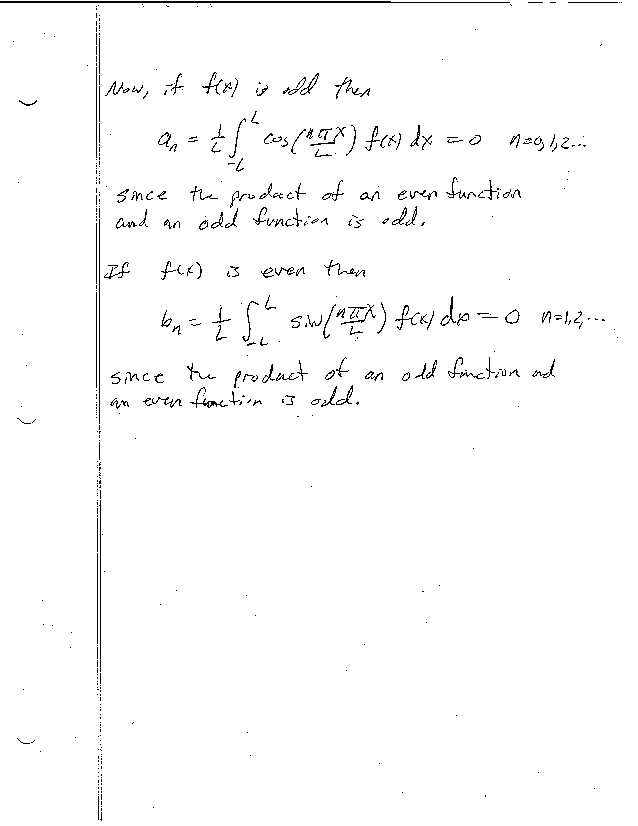 Now, if f(x) is odd then
aₙ = 1/L ∫_{-L}^{L} cos(nπx/L) f(x) dx = 0 n=0,1,2...
since the product of an even function
and an odd function is odd.
If f(x) is even then
bₙ = 1/L ∫_{-L}^{L} sin(nπx/L) f(x) dx = 0 n=1,2,...
since the product of an odd function and
an even function is odd.